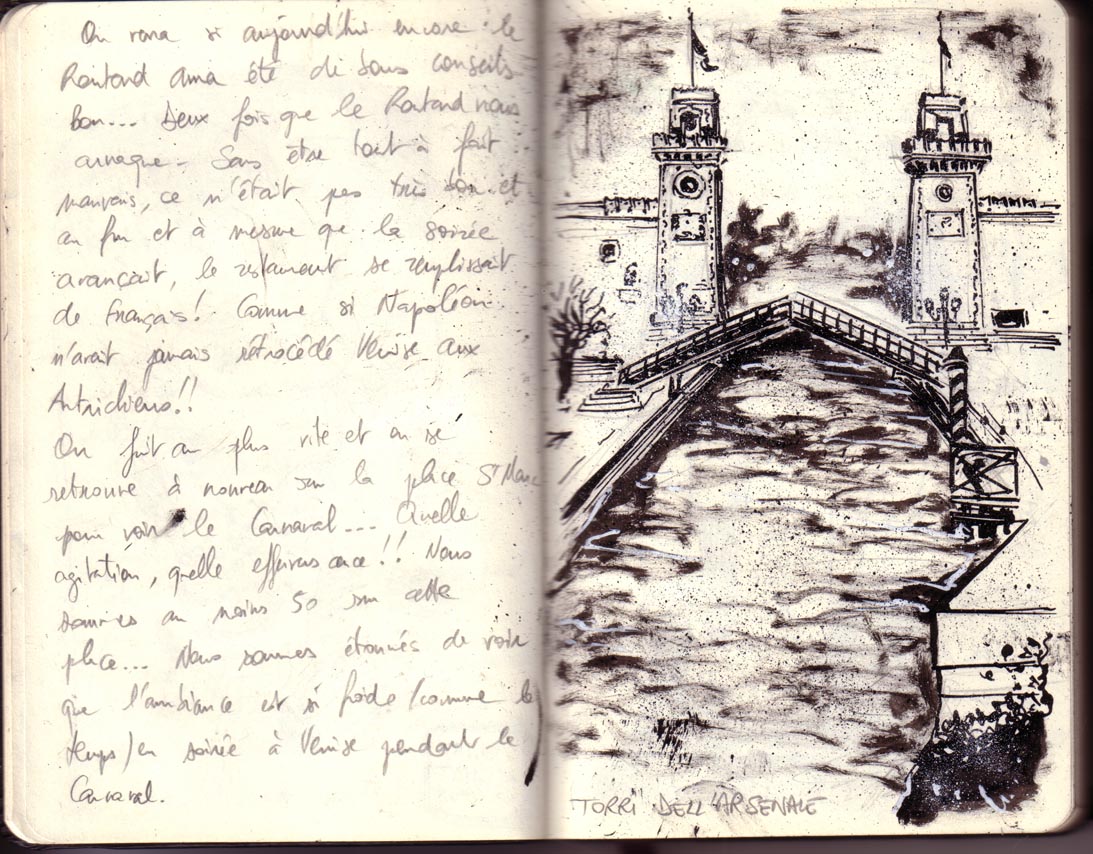 On verra si aujourd'hui encore le
Routard aura été de bons conseils
Bon... Deux fois que le Routard nous
arnaque. Sans être tout à fait
mauvais, ce n'était pas très bon et
au fur et à mesure que la soirée
avançait, le restaurant se remplissait
de Français! Comme si Napoléon
n'avait jamais rétrocédé Venise aux
Autrichiens!!
On fuit au plus vite et on se
retrouve à nouveau sur la place St Marc
pour voir le Carnaval... Quelle
agitation, quelle effervescence!! Nous
sommes au moins 50 sur cette
place... Nous sommes étonnés de voir
que l'ambiance est si froide (comme le
temps) en soirée à Venise pendant le
Carnaval.
TORRI DELL'ARSENALE